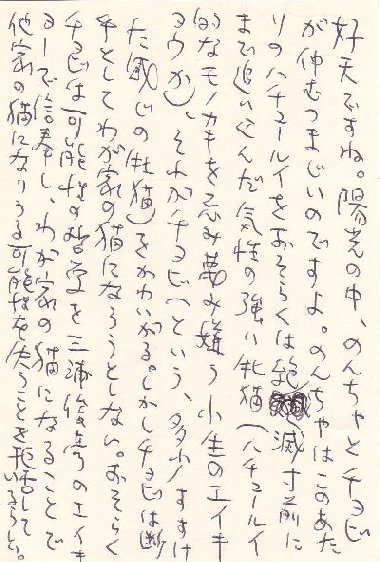 好天ですね。陽光の中、のんちゃとチョビ
が仲むつまじいのですよ。のんちゃはこのあた
りのハチュールイをおそらくは絶滅寸前に
まで追いこんだ気性の強い牝猫(ハチュールイ
的なモノカキを忌み蔑み嫌う小生のエイキ
ョウか)、それがチョビ(という、多少すすけ
た感じの牝猫)をかわいがる。しかしチョビは断
乎としてわが家の猫になろうとしない。おそらく
チョビは可能性の哲学を三浦俊彦のエイキ
ョーで信奉し、わが家の猫になることで
他家の猫になりうる可能性を失うことを拒否しているらしい。